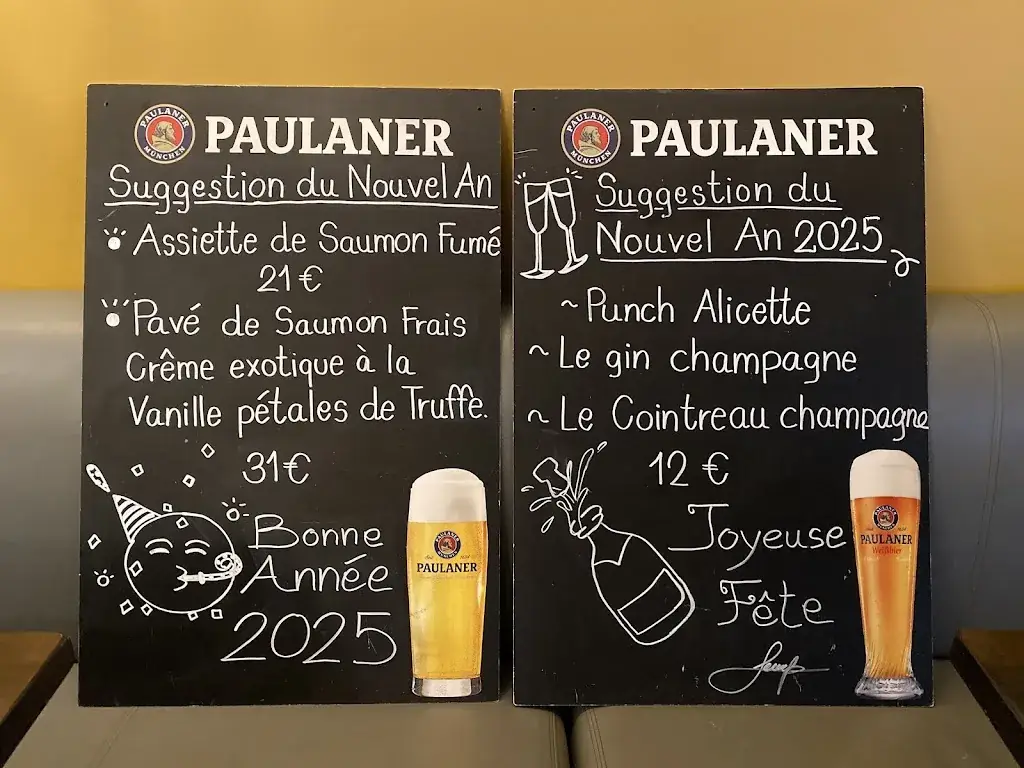 PAULANER
MÜNCHEN
PAULANER
Suggestion du Nouvel An
Assiette de Saumon Fumé
21 €
Pavé de Saumon Frais
Crême exotique à la
Vanille pétales de Truffe.
31 €
Bonne
Année
2025
PAULANER
PAULANER
MÜNCHEN
PAULANER
Suggestion du
Nouvel An 2025
~ Punch Alicette
~ Le gin champagne
~ Le Cointreau champagne
12 €
Joyeuse
Fête
PAULANER
Weißbier